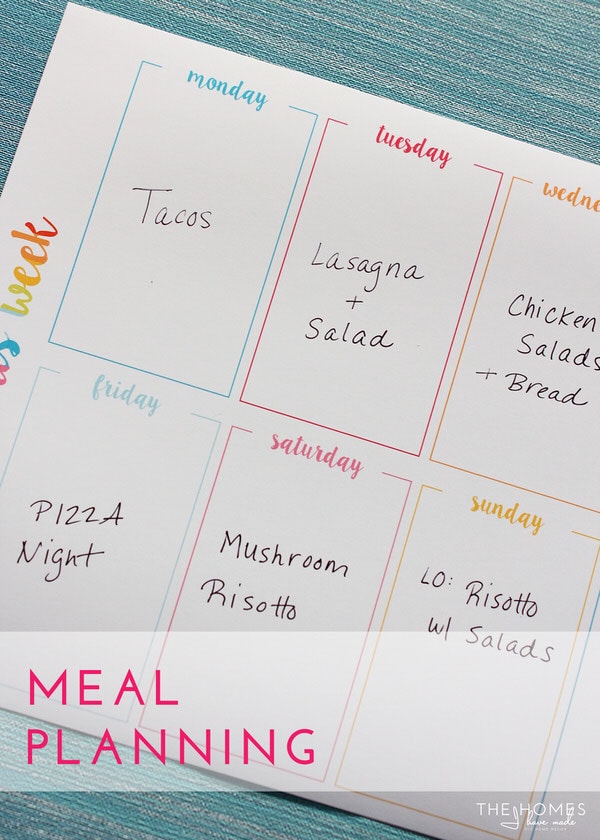 monday
Tacos
tuesday
Lasagna
+
Salad
wedne
Chicken
Salads
+ Bread
is week
friday
PIZZA
Night
saturday
Mushroom
Risotto
sunday
LO: Risotto
w/ Salads
MEAL
PLANNING
THE HOMES
I have made